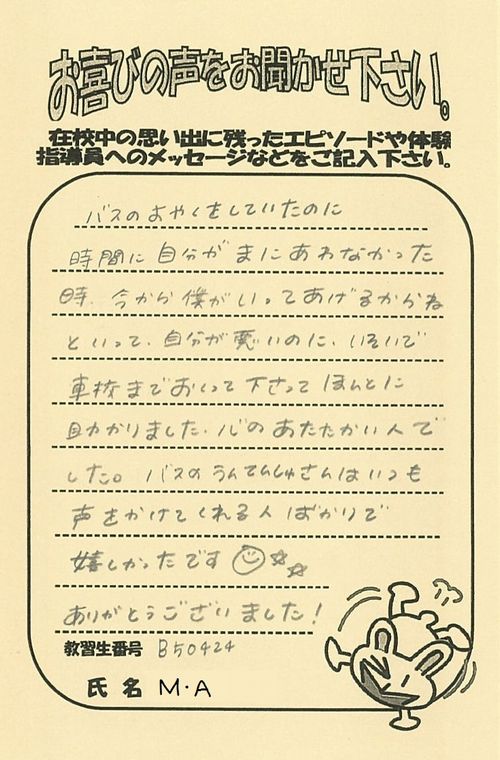 お喜びの声をお聞かせ下さい。
在校中の思い出に残ったエピソードや体験
指導員へのメッセージなどをご記入下さい。
バスのよやくをしていたのに
時間に自分がまにあわなかった
時、今から僕がいってあげるからね
といって、自分が悪いのに、いそいで
車校までおくって下さって ほんとに
助かりました。心のあたたかい人で
した。バスのうんてんしゅさんはいつも
声をかけてくれる人ばかりで
嬉しかったです ☺☆☆
ありがとうございました!
教習生番号 B50424
氏名 M・A